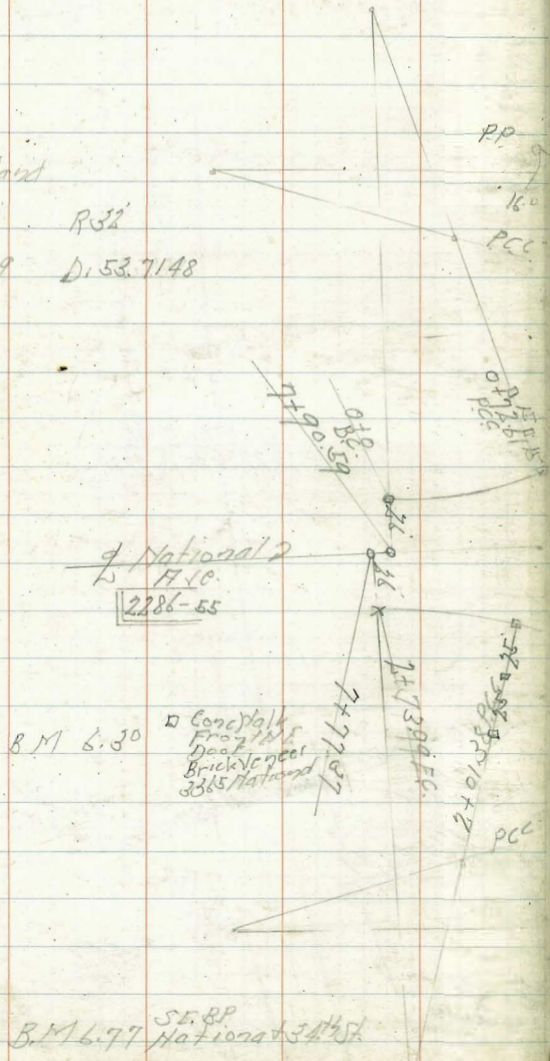 P.P.
16.0
R-32'
PCC
9
D. 53.7148
PCC
7+90.59
0+0
B.C.
26
℄ National 2
Ave.
36
2286-55
25
25
7+77.67
B.M 6.30
Conc Walk
Front N.E.
Door
Brick Veneer
3365 National
2+01.35 PCC
PCC
B.M 6.77
S.E. B.P.
National & 34th St.